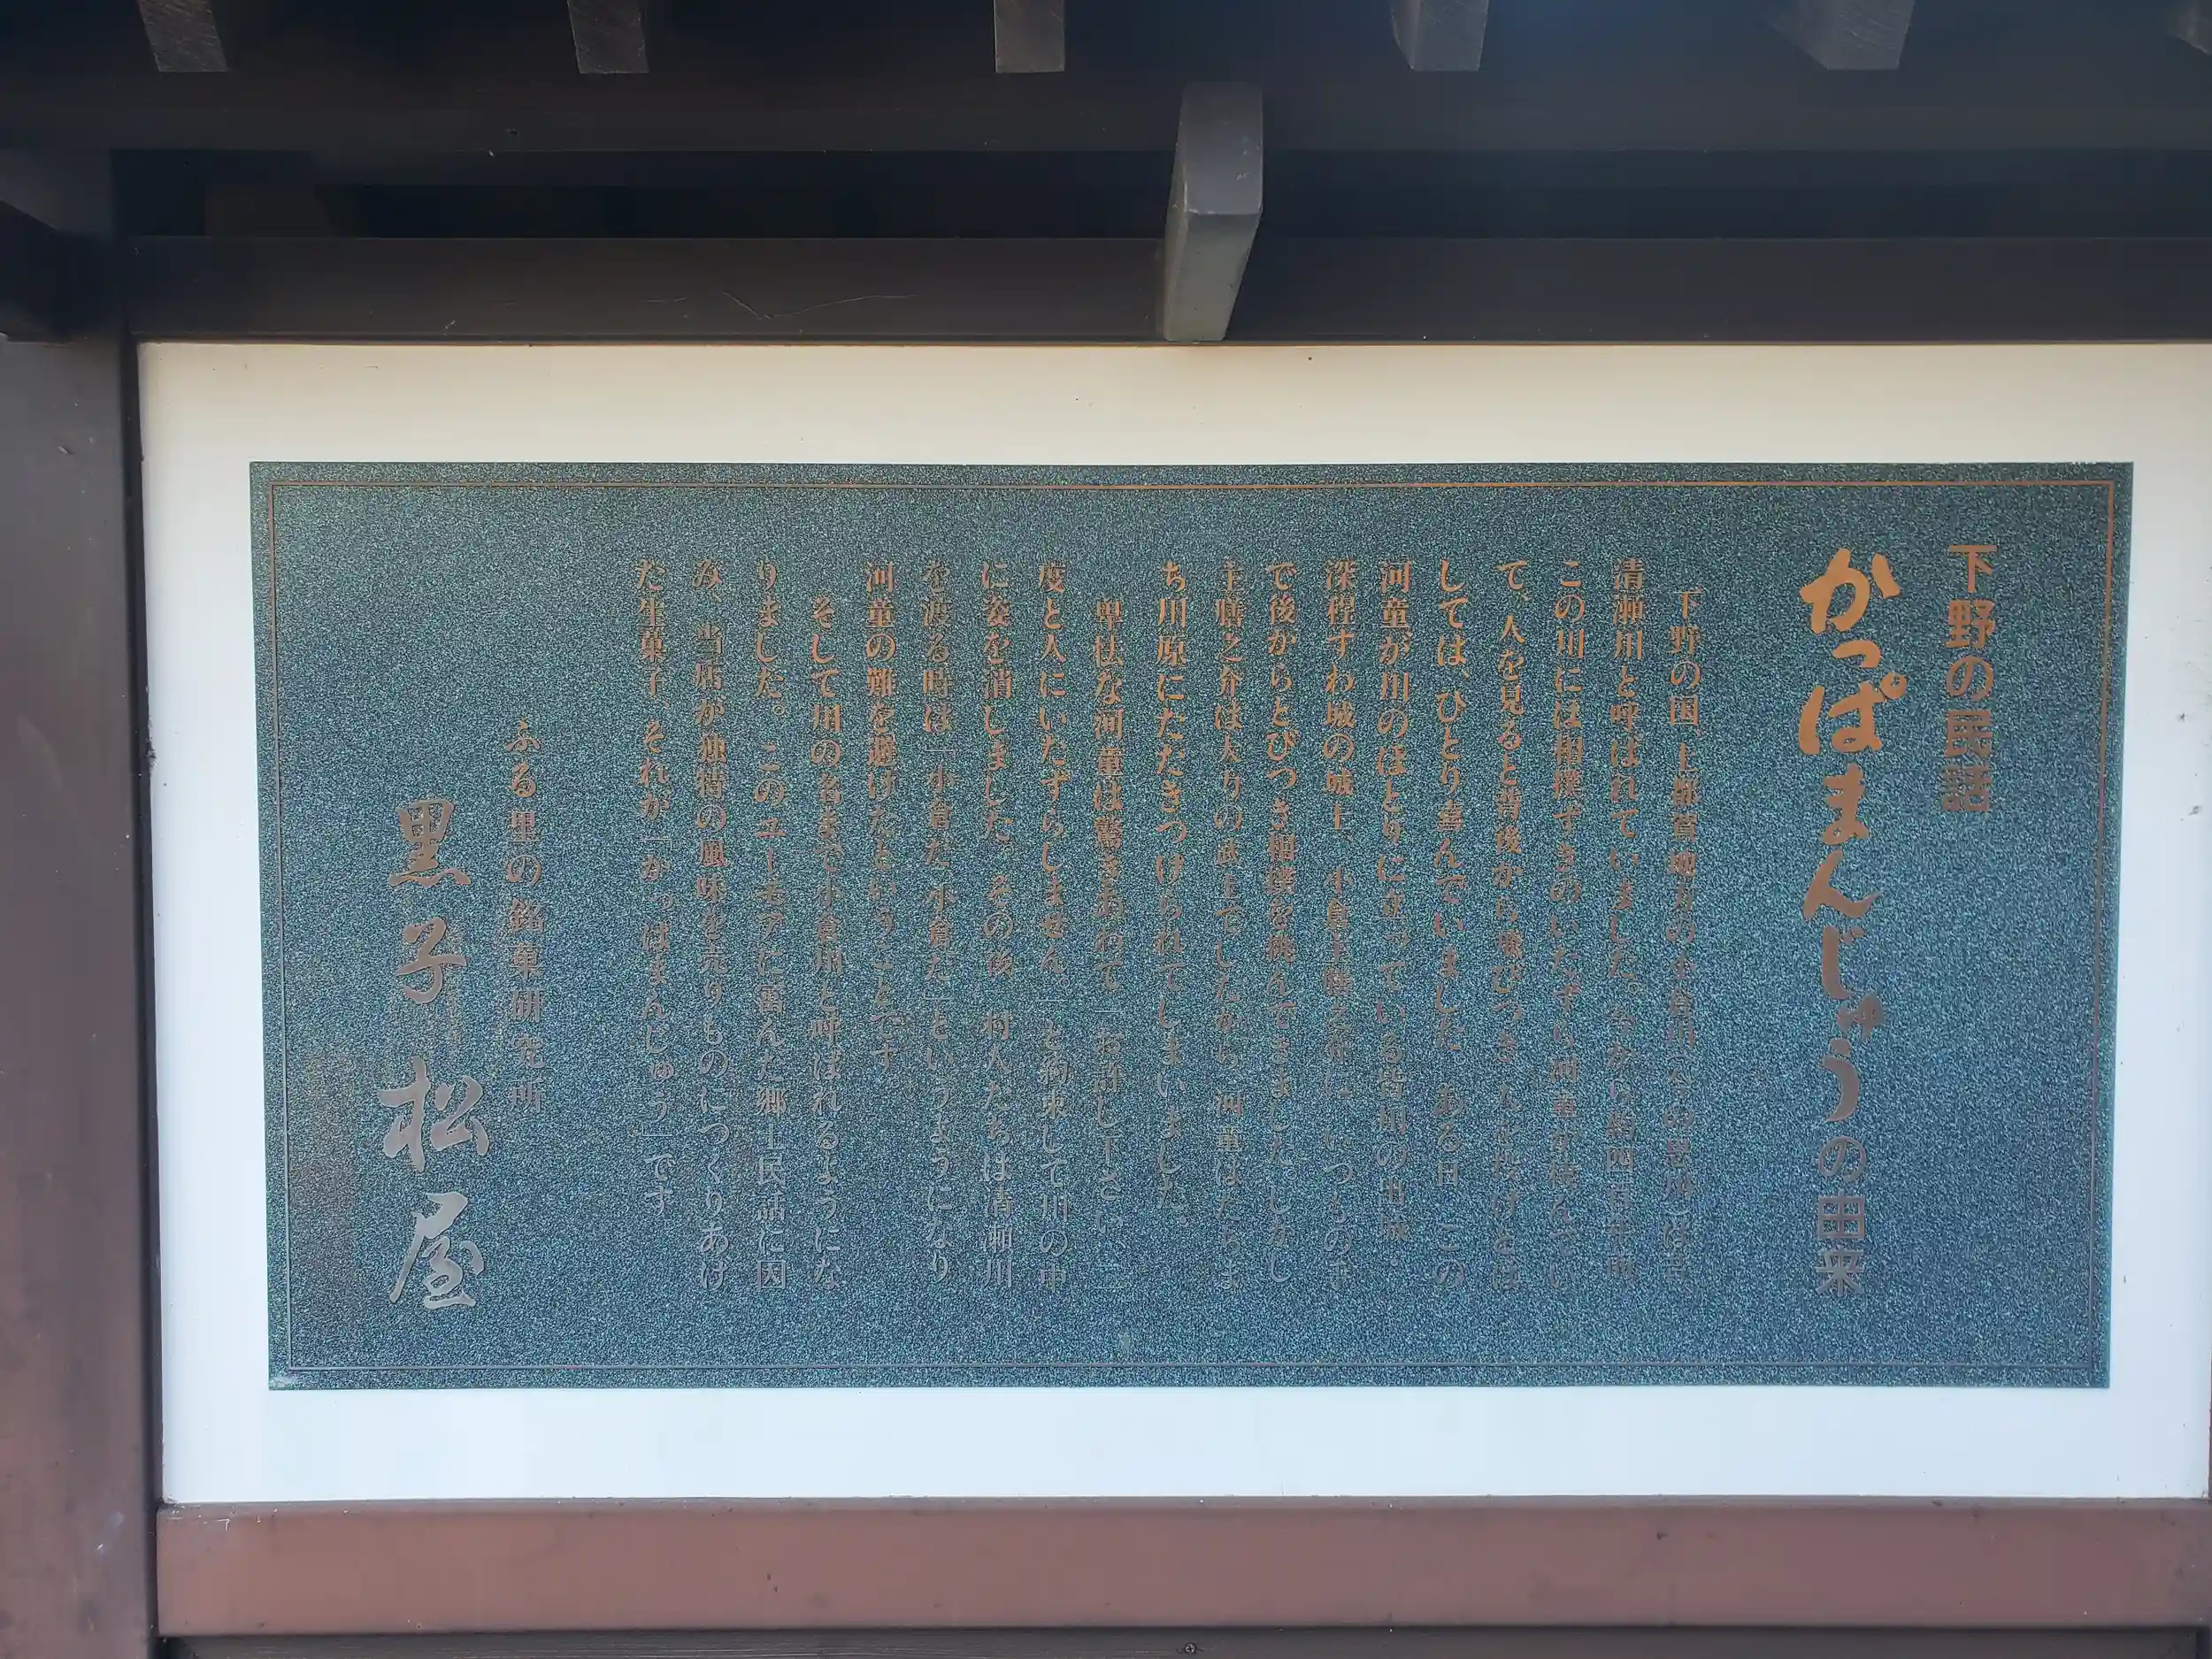 下野の民話
かっぱまんじゅうの由来
下野の国、上都賀地方の小倉川(今の思川)は昔、
清瀬川と呼ばれていました。今から約四百年前、
この川には相撲ずきのいたずら河童が棲んでい
て、人を見ると背後から飛びつき
しては、ひとり喜んでいました。ある日、この
河童が川のほとりに立っている
深程すわ城の城主、小倉主膳之介に、いつもの
で後からとびつき相撲を挑んできました。しかし
主膳之介は大力の武士でしたから、河童はたちま
ち川原にたたきつけられてしまいました。
卑怯な河童は驚きあわて「お許し下さい
度と人にいたずらしません。」と約束して川の中
に姿を消しました。その後、村人たちは清瀬川
を渡る時は「小倉だ、小倉だ」というようになり
河童の難を避けたということです。
そして川の名まで小倉川と呼ばれるようにな
りました。このユーモアに富んだ郷土民話に因
み、当店が独特の風味を売りものにつくりあげ
た生菓子、それが「かっぱまんじゅう」です
ふる里の銘菓研究所
黒子松屋